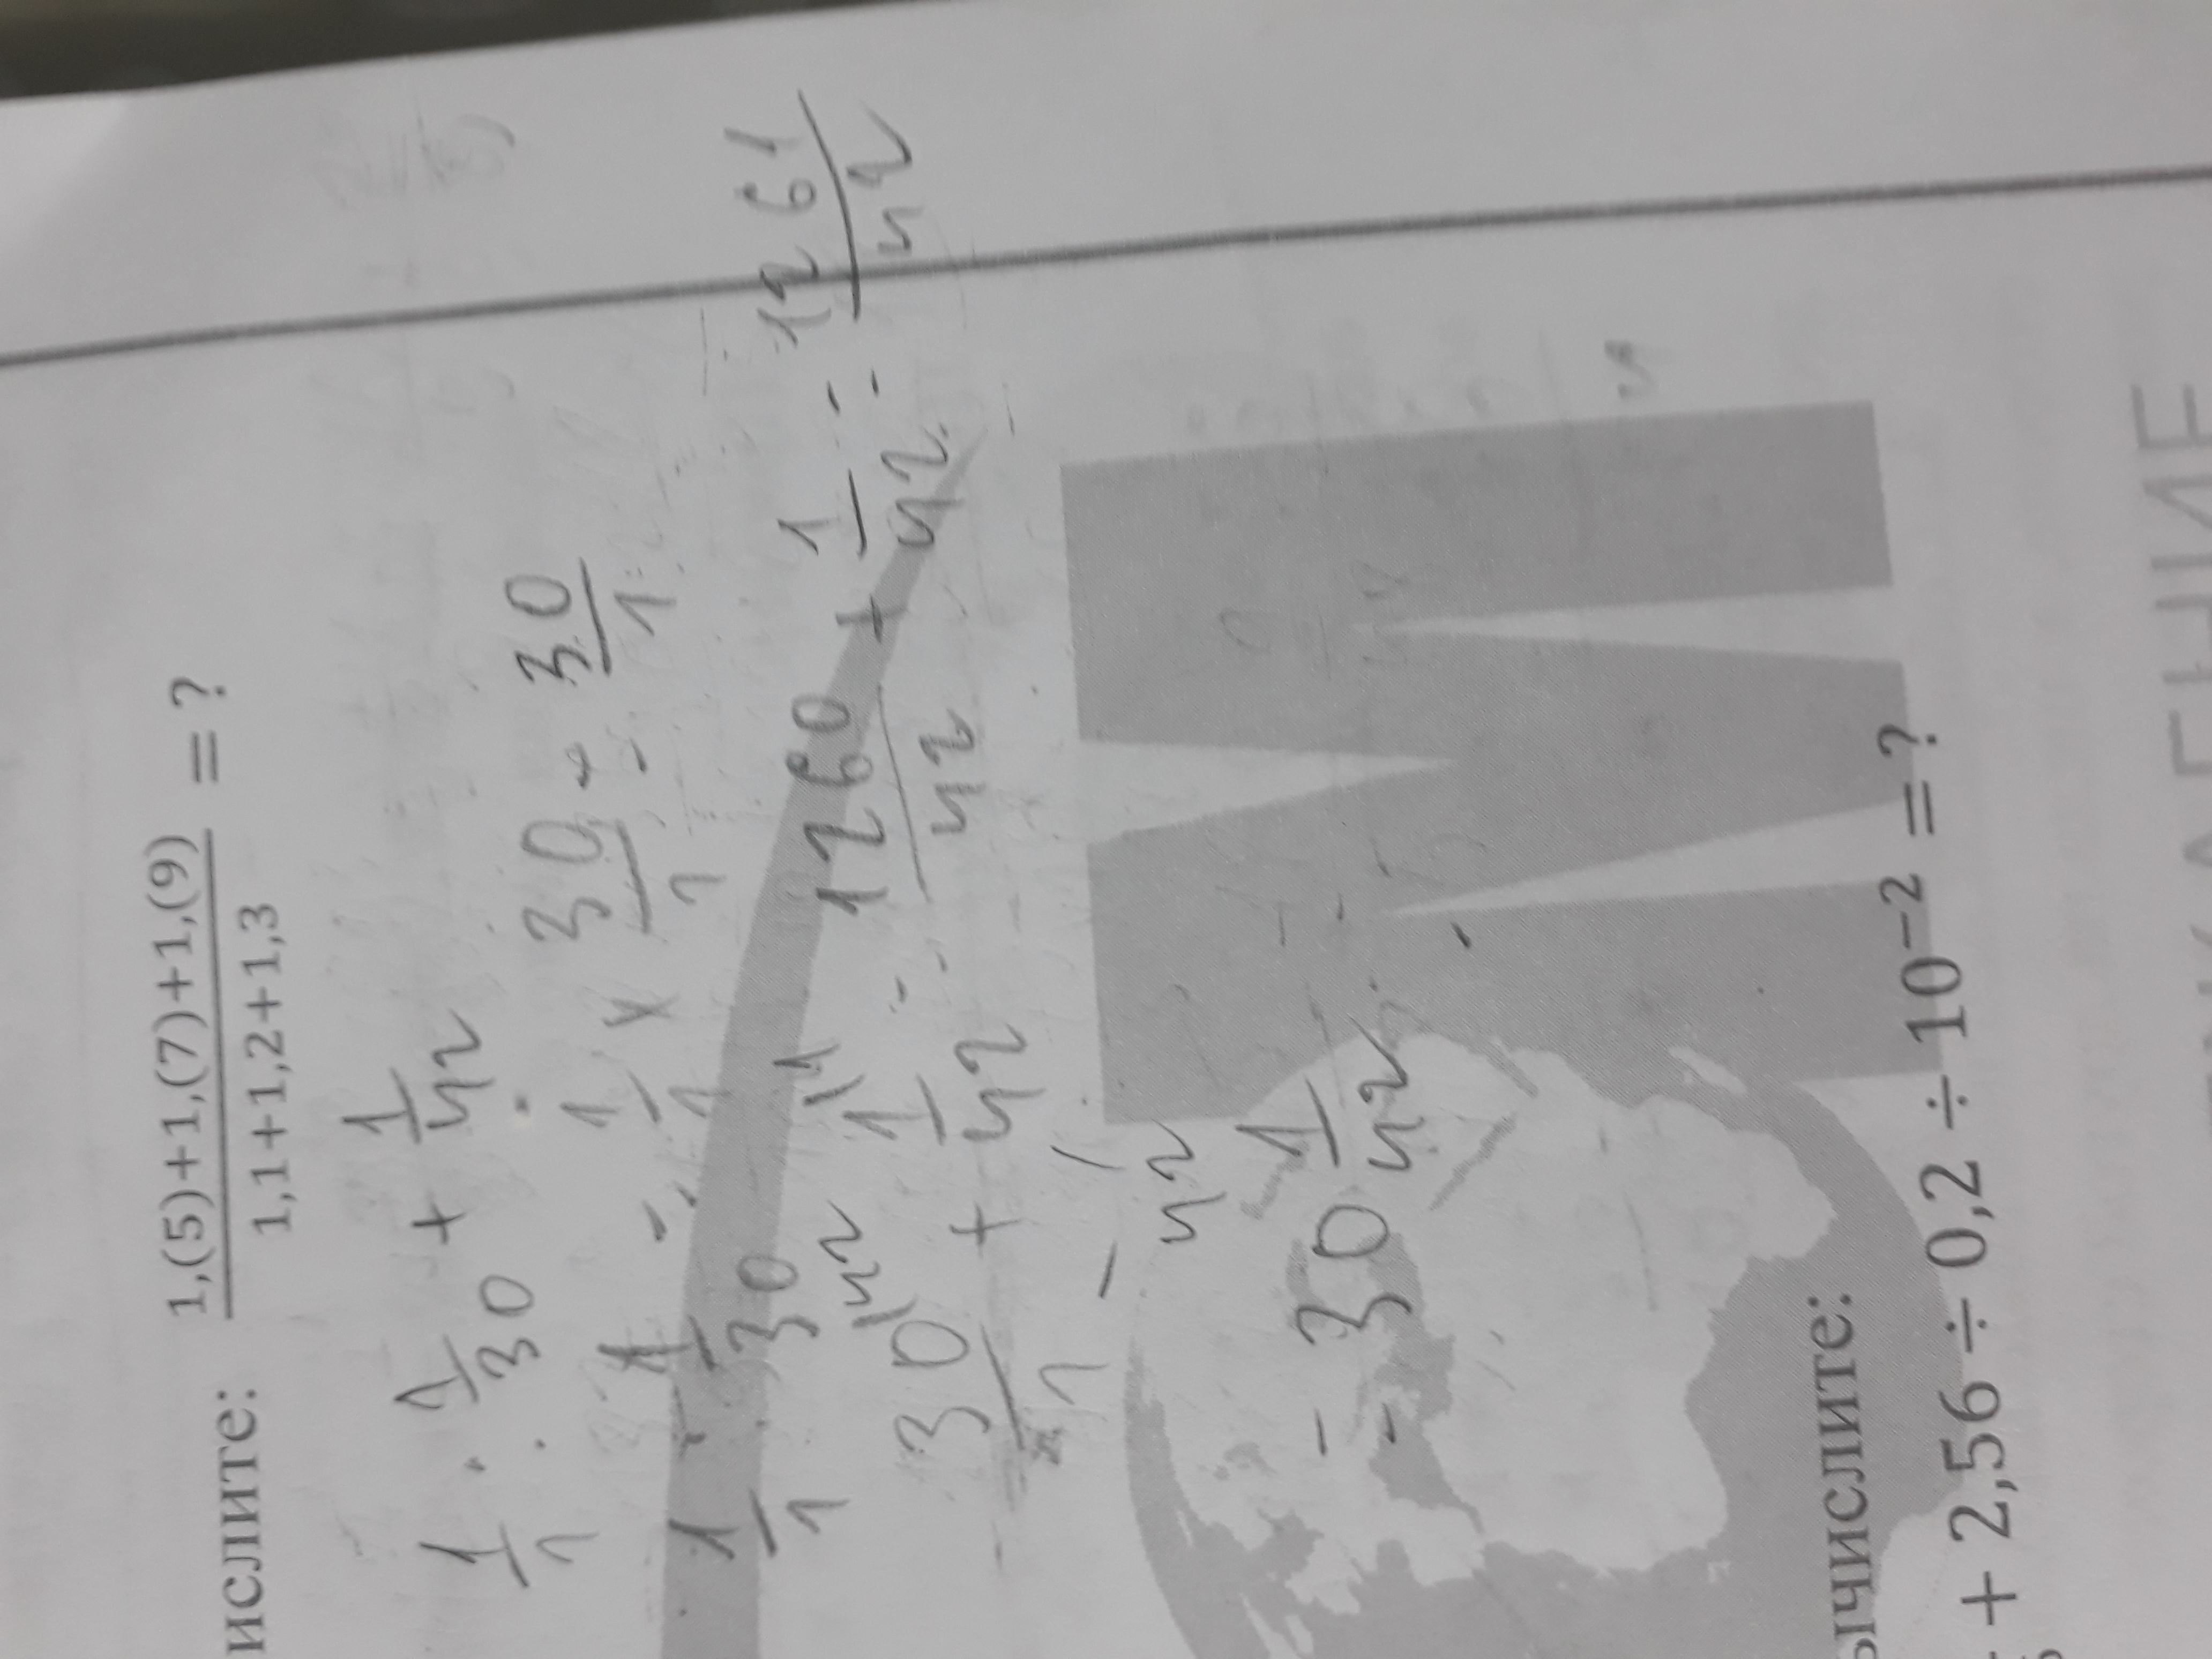 ислите: 1,(5)+1,(7)+1,(9) / 1,1+1,2+1,3 = ?
1/1 : 1/30 + 1/42
1/1 : 1/30 = 1/1 × 30/1 = 30/1
30/1 + 1/42 = 1260/42 + 1/42 = 1261/42
42
= 30 1/42
ычислите:
+ 2,56 ÷ 0,2 ÷ 10⁻² = ?
ЕНИЕ